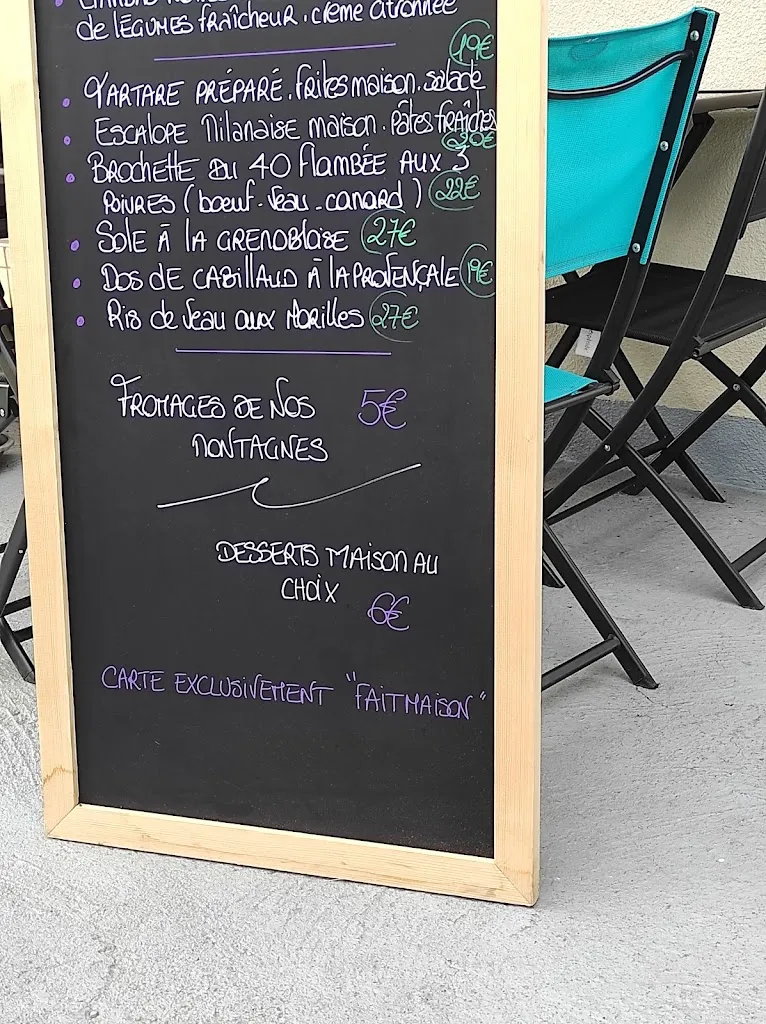 de LÉGUMES FRAÎCHEUR. crème citronnée
19€
TARTARE PRÉPARÉ. frites maison. salade
ESCALOPE Milanaise maison. Pâtes fraîches
20€
BROCHETTE DU 40 flambée AUX 3
POIVRES (boeuf. Veau. canard) 22€
SOLE À LA GRENOBLOISE 27€
DOS DE CABILLAUD À LA PROVENÇALE 19€
Ris de Veau aux Morilles 27€
FROMAGES DE NOS 5€
MONTAGNES
DESSERTS MAISON AU
CHOIX
6€
CARTE EXCLUSIVEMENT "FAIT MAISON"